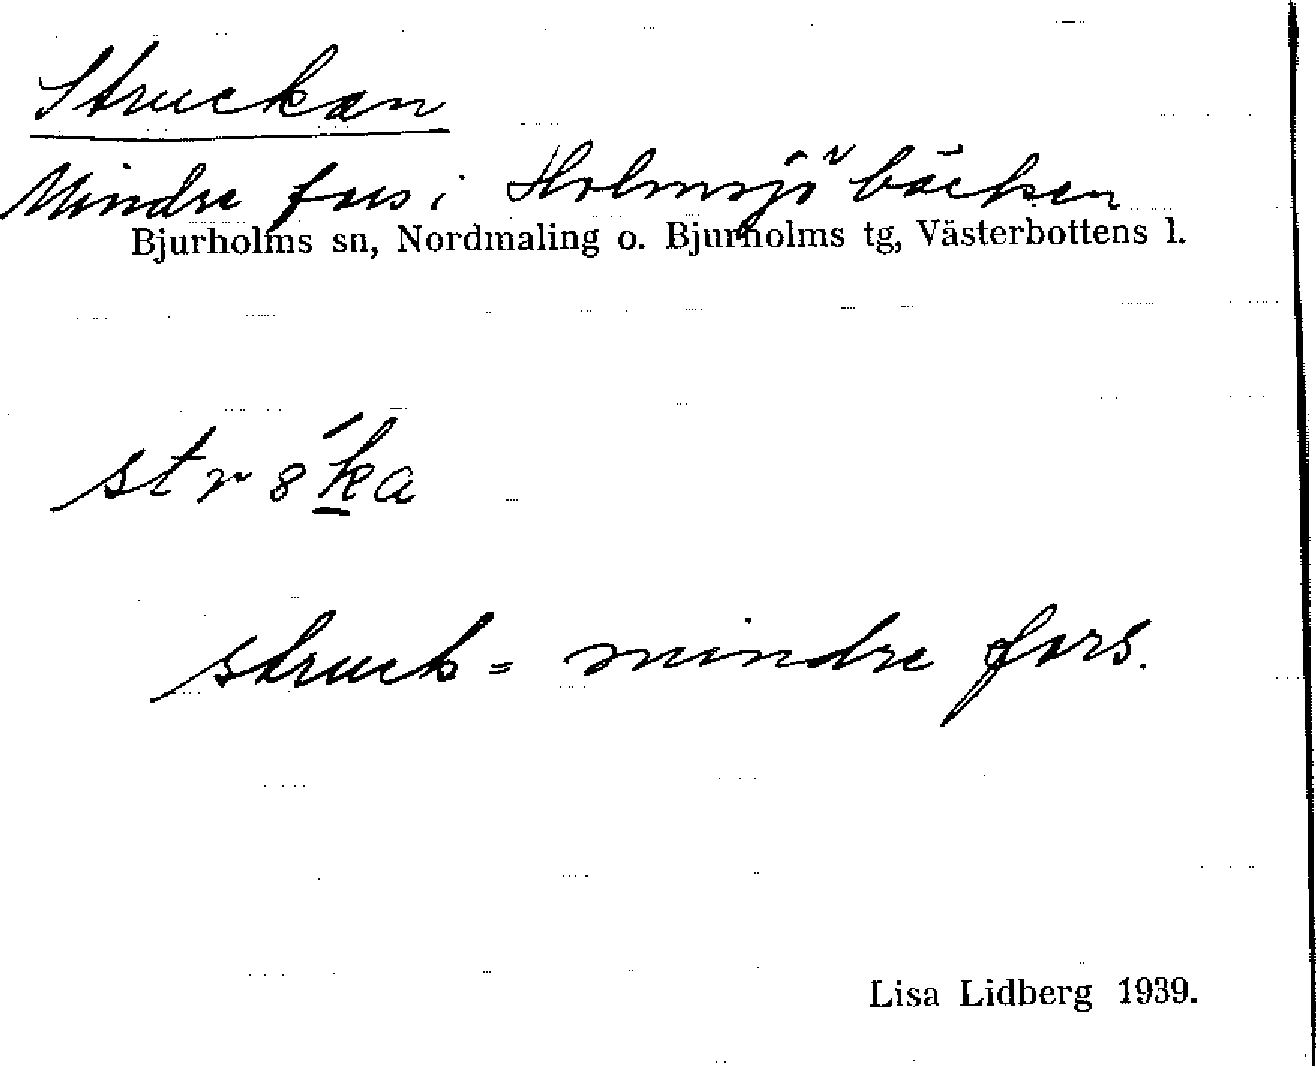 Struckan
Mindre fors i Holmsjöbäcken
Bjurholms sn, Nordmaling o. Bjurholms tg, Västerbottens l.
str8́k̲a
struck = mindre fors.
Lisa Lidberg 1939.